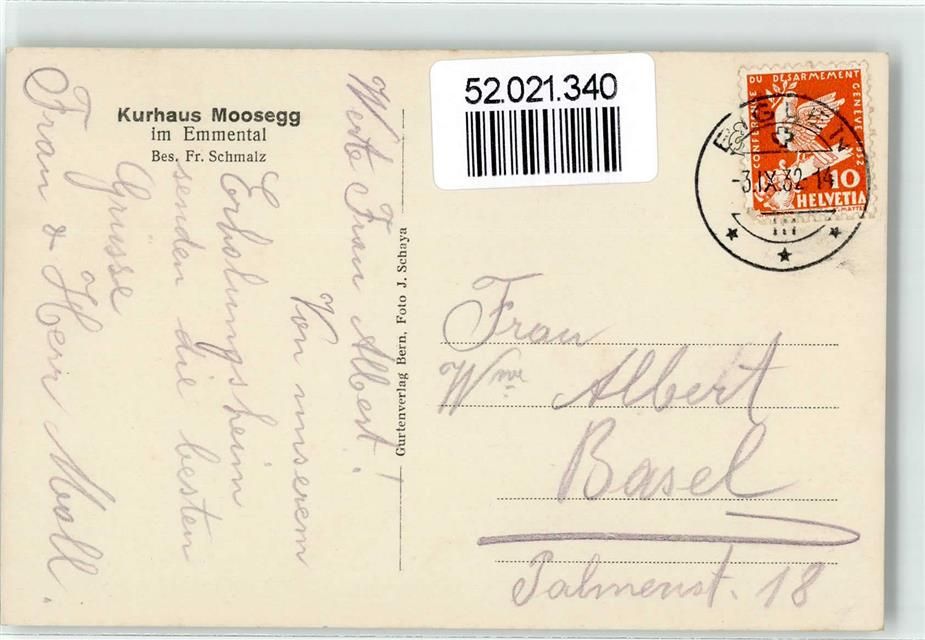 Kurhaus Moosegg
im Emmental
Bes. Fr. Schmalz
Werte Frau Albert!
Von unserem
Erholungsheim
senden die besten
Grüsse
Frau & Herr Moll.
Gurtenverlag Bern, Foto J. Schaya
52.021.340
CONFERENCE DU DESARMEMENT GENEVE 1932
10
HELVETIA
BIGLEN
-3.IX.32-14
Frau
Wwe Albert
Basel
Palmenst. 18